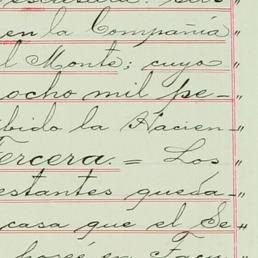 en la Compañía "
l Monte; cuyo "
ocho mil pe- "
bido la Hacien- "
Tercera. = Los "
estantes queda- "
casa que el Se "